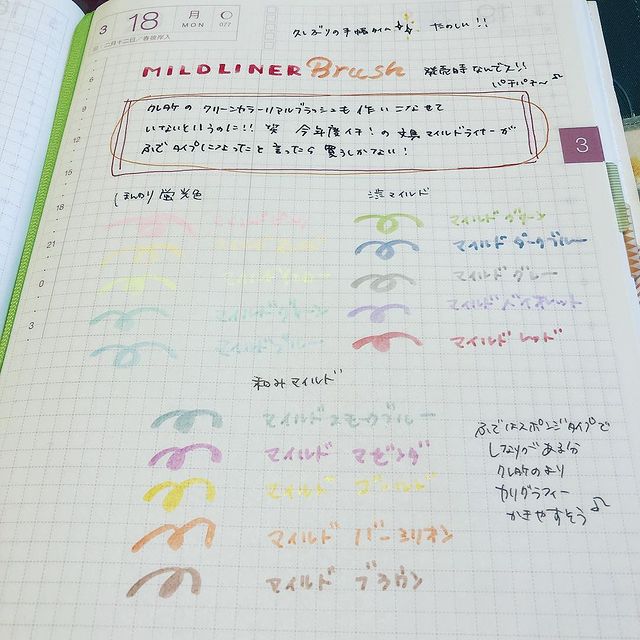 3 18 月 MON 077
二月十二日/春彼岸入
久しぶりの手帳タイム たのしい!!
MILDLINER Brush 発売時なんでス!!
パチパチ〜♪
クレタケの クリーンカラーリアルブラッシュも 使いこなせて
いないというのに!! 笑 今年度イチ!の文具マイルドライナーが
ふでタイプになったこと言ったら買うしかない!
3
6
9
12
15
18
21
0
3
ほんのり蛍光色
渋マイルド
マイルドグリーン
マイルドダークブルー
マイルドグレー
マイルドバイオレット
マイルドブルー
マイルドレッド
和みマイルド
マイルドスモークブルー
マイルド マゼンダ
マイルド ゴールド
マイルド バーミリオン
マイルド ブラウン
ふではスポンジタイプで
しなりがある分
クレタケのより
カリグラフィー
かきやすそう♪